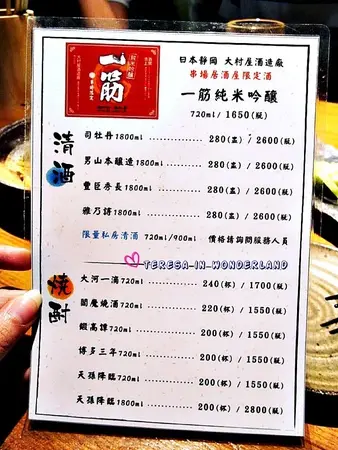 一筋
純米吟醸
日本靜岡 大村屋酒造廠
串場居酒屋限定酒
一筋純米吟釀
720ml/ 1650(瓶)
清酒
司牡丹1800ml 280(盅) / 2600(瓶)
男山本釀造1800ml 280(盅) / 2600(瓶)
豐臣秀長1800ml 280(盅) / 2600(瓶)
雅乃詩1800ml 280(盅) / 2600(瓶)
限量私房清酒 720ml/900ml 價格請詢問服務人員
TERESA-IN-WONDERLAND
燒酎
大河一滴720ml 240(杯) / 1700(瓶)
閻魔燒酒720ml 220(杯) / 1550(瓶)
鍛高譚720ml 200(杯) / 1550(瓶)
博多三年720ml 200(杯) / 1550(瓶)
天孫降臨720ml 200(杯) / 1550(瓶)
天孫降臨1800ml 200(杯) / 2800(瓶)